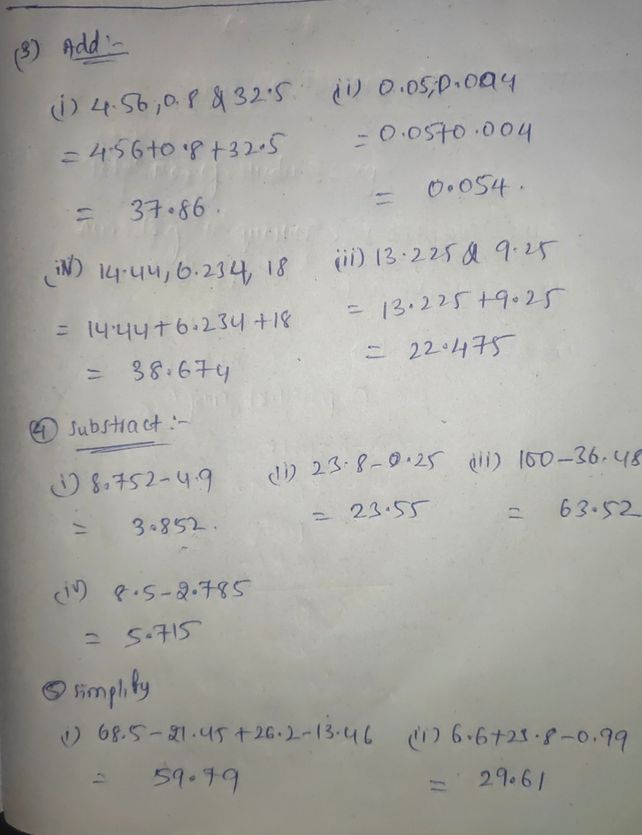 (3) Add:-
(i) 4.56, 0.8 & 32.5 (ii) 0.05, 0.004
= 4.56+0.8+32.5 = 0.05+0.004
= 37.86. = 0.054.
(iv) 14.44, 6.234, 18 (iii) 13.225 & 9.25
= 14.44+6.234+18 = 13.225+9.25
= 38.674 = 22.475
(4) Substract :-
(i) 8.752-4.9 (ii) 23.8-0.25 (iii) 100-36.48
= 3.852. = 23.55 = 63.52
(iv) 8.5-2.785
= 5.715
(5) Simplify
(i) 68.5-21.45+26.2-13.46 (ii) 6.6+23.8-0.79
= 59.79 = 29.61